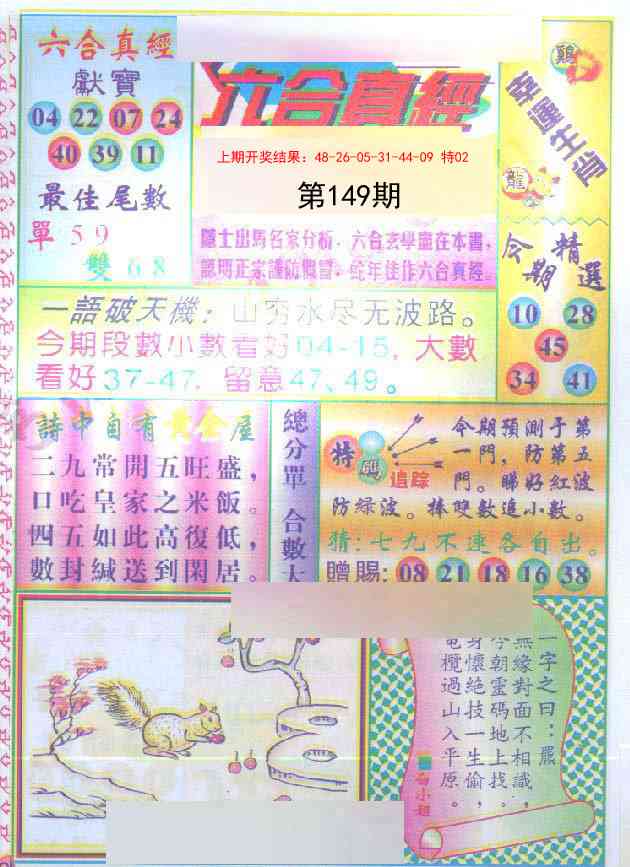 六合真經
獻寶
04 22 07 24
40 39 11
最佳尾數
單 5 9
雙 6 8
六合真經
上期开奖结果: 48-26-05-31-44-09 特02
第149期
隱士出馬名家分析，六合玄學盡在本書，
認明正宗謹防假冒，蛇年佳作六合真經。
鷄
幸運生肖
龍
今期精選
10 28
45
34 41
一語破天機：山穷水尽无波路。
今期段數小數看好04-15，大數
看好37-47，留意47、49。
詩中自有黃金屋
二九常開五旺盛，
日吃皇家之米飯。
四五如此高復低，
數封緘送到閑居。
總分單 合數大
特碼
追踪
今期預測于第
一門，防第五
門。睇好紅波
防緑波。捧雙數追小數。
猜：七九不連各自出。
贈賜：08 21 18 16 38
一字之曰：羆
無緣對面不相識，
今朝靈碼地上找。
身懷絕技一生偷，
欖過山入平原。
白小姐